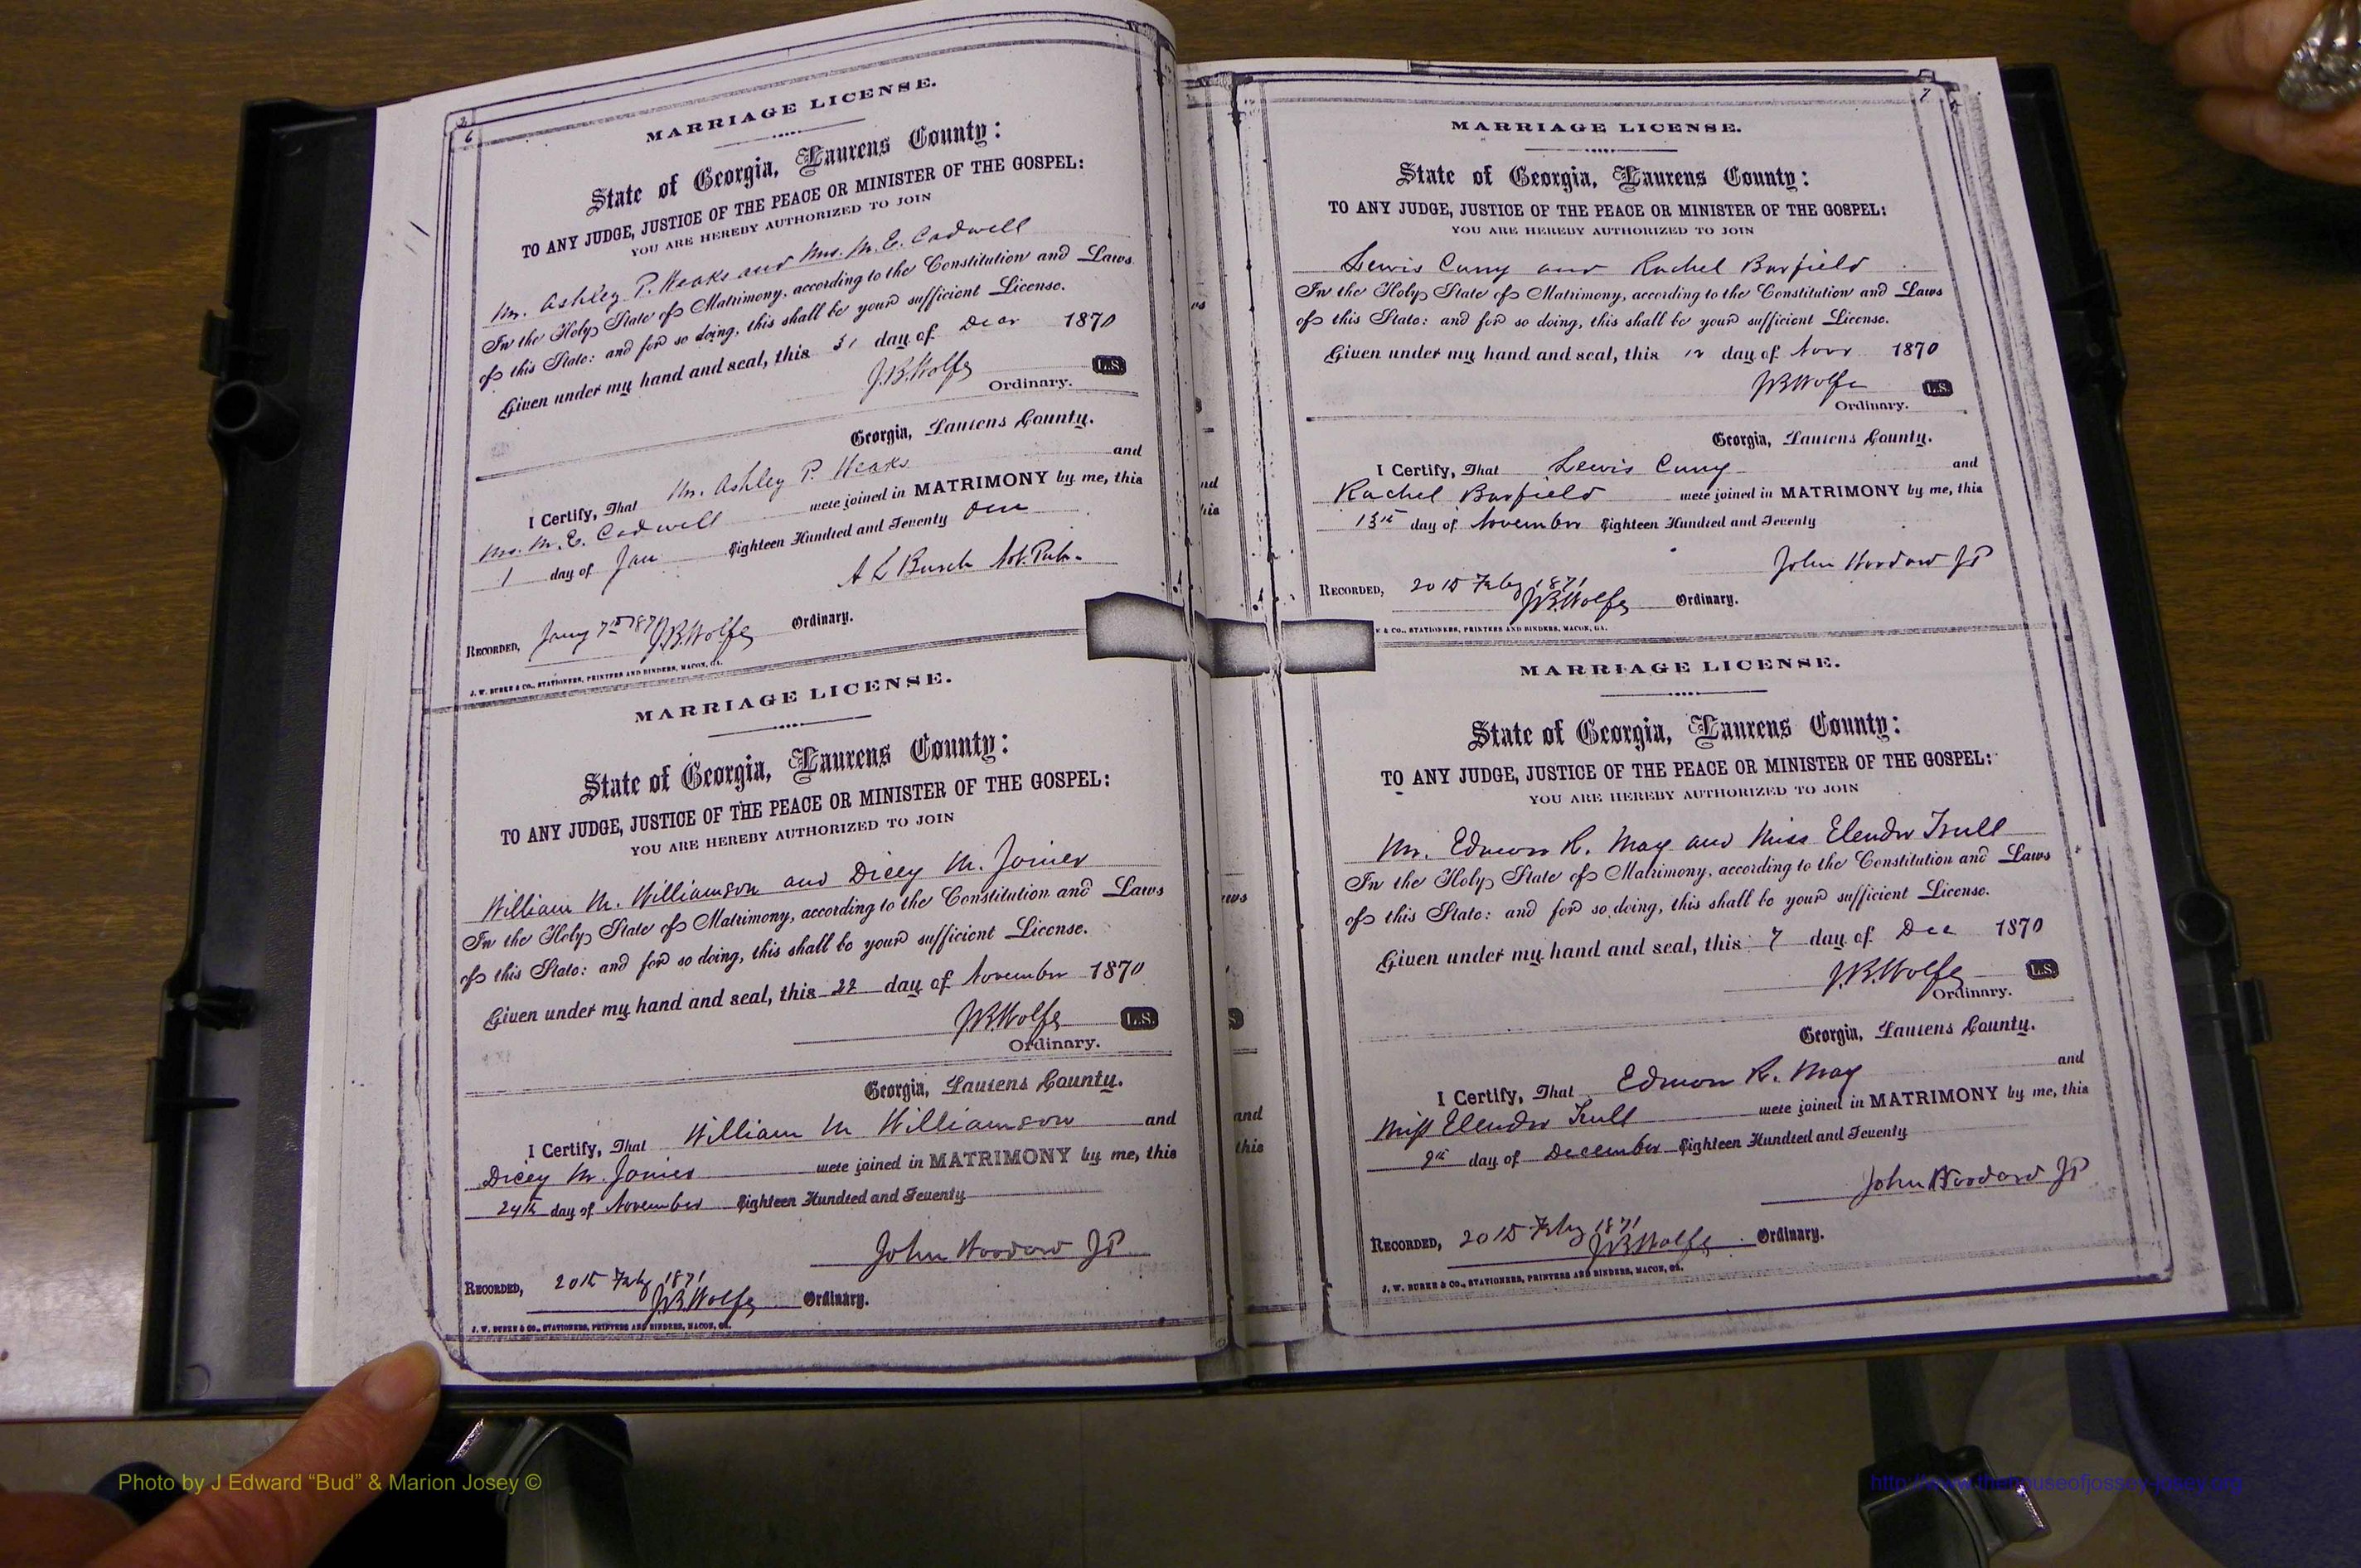 6
MARRIAGE LICENSE.
State of Georgia, Laurens County:
TO ANY JUDGE, JUSTICE OF THE PEACE OR MINISTER OF THE GOSPEL:
YOU ARE HEREBY AUTHORIZED TO JOIN
Mr. Ashley P. Heaks and Mrs. M. E. Cadwell
In the Holy State of Matrimony, according to the Constitution and Laws
of this State: and for so doing, this shall be your sufficient License.
Given under my hand and seal, this 31 day of Decr 1870
J.B. Wolfe L.S.
Ordinary.
Georgia, Laurens County.
I Certify, That Mr. Ashley P. Heaks and
Mrs. M. E. Cadwell were joined in MATRIMONY by me, this
1 day of Jan Eighteen Hundred and Seventy One
A L Burch Not. Pub.
RECORDED, Jany 7th 1871 J.B. Wolfe Ordinary.
J. W. BURKE & CO., STATIONERS, PRINTERS AND BINDERS, MACON, GA.
MARRIAGE LICENSE.
State of Georgia, Laurens County:
TO ANY JUDGE, JUSTICE OF THE PEACE OR MINISTER OF THE GOSPEL:
YOU ARE HEREBY AUTHORIZED TO JOIN
William M. Williamson and Dicey M. Joiner
In the Holy State of Matrimony, according to the Constitution and Laws
of this State: and for so doing, this shall be your sufficient License.
Given under my hand and seal, this 22 day of November 1870
J.B. Wolfe L.S.
Ordinary.
Georgia, Laurens County.
I Certify, That William M Williamson and
Dicey M. Joiner were joined in MATRIMONY by me, this
24th day of November Eighteen Hundred and Seventy
John Woodard JP
RECORDED, 20th Feby 1871 J.B. Wolfe Ordinary.
J. W. BURKE & CO., STATIONERS, PRINTERS AND BINDERS, MACON, GA.
7
MARRIAGE LICENSE.
State of Georgia, Laurens County:
TO ANY JUDGE, JUSTICE OF THE PEACE OR MINISTER OF THE GOSPEL:
YOU ARE HEREBY AUTHORIZED TO JOIN
Lewis Curry and Rachel Barfield
In the Holy State of Matrimony, according to the Constitution and Laws
of this State: and for so doing, this shall be your sufficient License.
Given under my hand and seal, this 12 day of Novr 1870
J.B. Wolfe L.S.
Ordinary.
Georgia, Laurens County.
I Certify, That Lewis Curry and
Rachel Barfield were joined in MATRIMONY by me, this
13th day of November Eighteen Hundred and Seventy
John Woodard JP
RECORDED, 20th Feby 1871 J.B. Wolfe Ordinary.
& CO., STATIONERS, PRINTERS AND BINDERS, MACON, GA.
MARRIAGE LICENSE.
State of Georgia, Laurens County:
TO ANY JUDGE, JUSTICE OF THE PEACE OR MINISTER OF THE GOSPEL:
YOU ARE HEREBY AUTHORIZED TO JOIN
Mr. Edmon R. May and Miss Elender Trull
In the Holy State of Matrimony, according to the Constitution and Laws
of this State: and for so doing, this shall be your sufficient License.
Given under my hand and seal, this 7 day of Dec 1870
J.B. Wolfe L.S.
Ordinary.
Georgia, Laurens County.
I Certify, That Edmon R. May and
Miss Elender Trull were joined in MATRIMONY by me, this
9th day of December Eighteen Hundred and Seventy
John Woodard JP
RECORDED, 20th Feby 1871 J.B. Wolfe Ordinary.
J. W. BURKE & CO., STATIONERS, PRINTERS AND BINDERS, MACON, GA.
Photo by J Edward “Bud” & Marion Josey ©
http://www.thehouseofjossey-josey.org